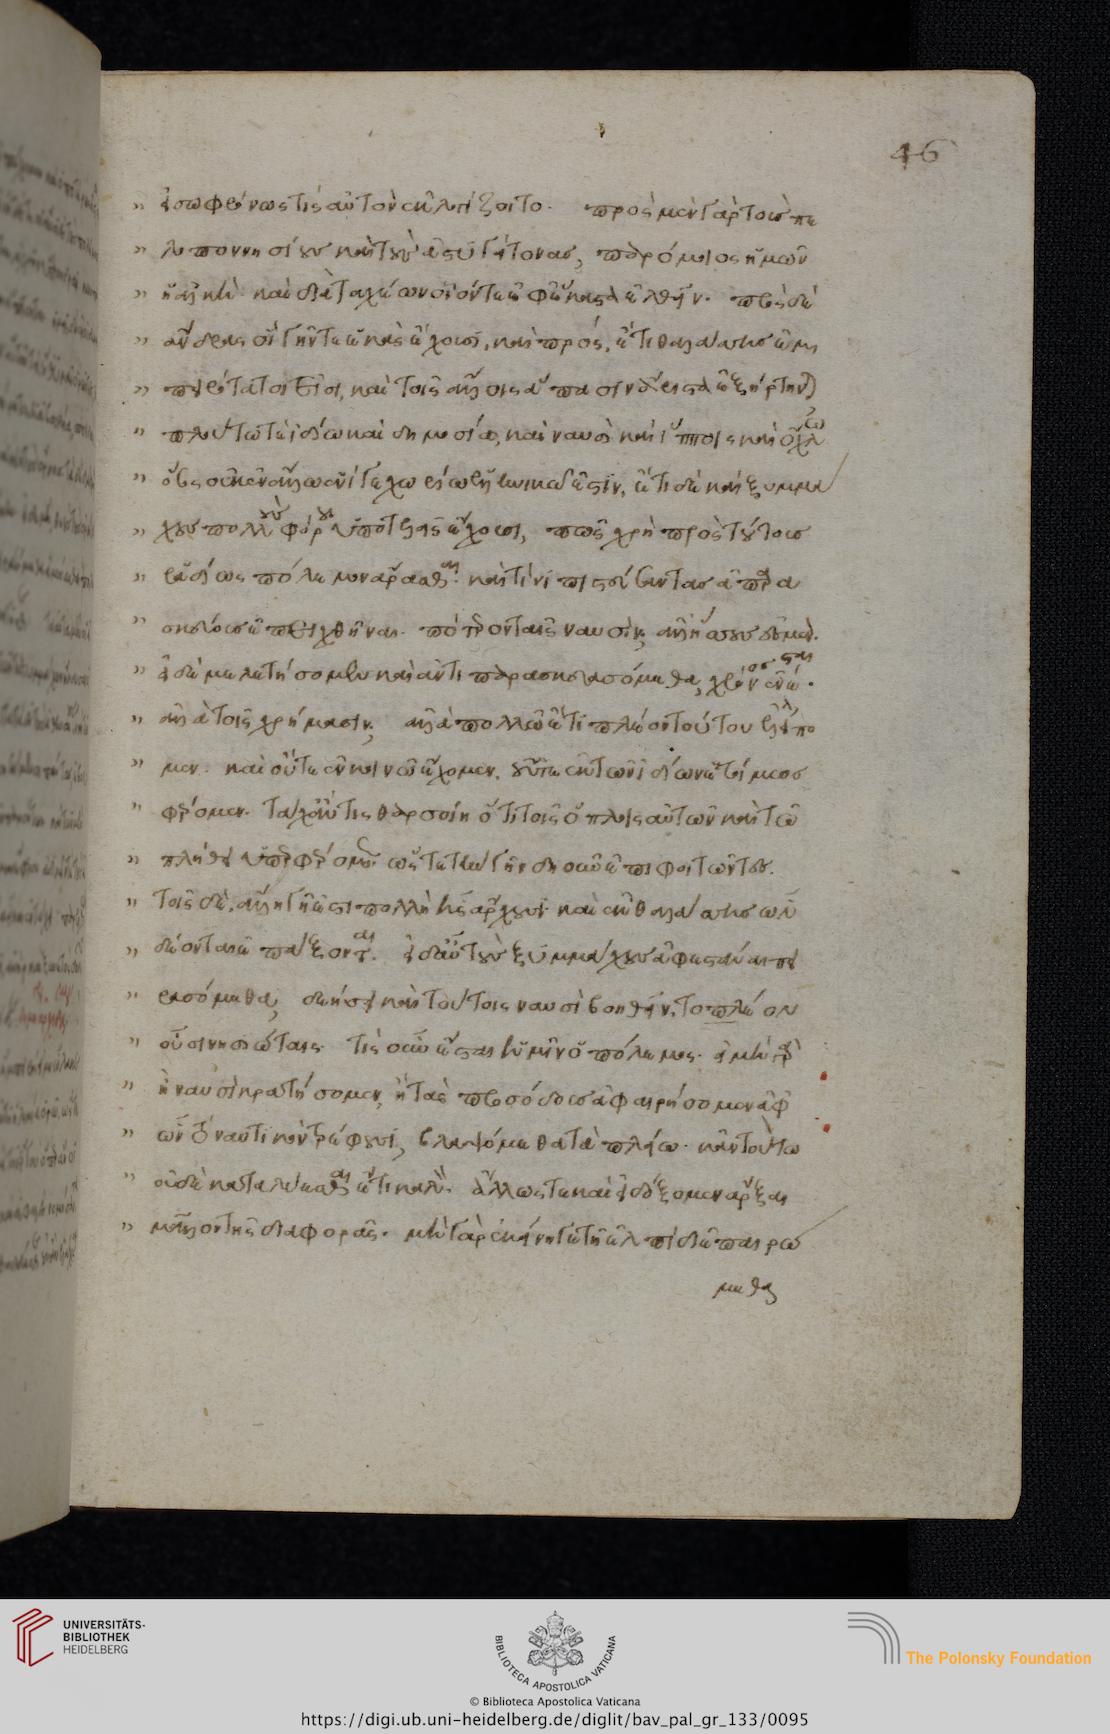 46
„ εἰ σωφρόνως τις αὐτὸν ἐκλογίζοιτο· πρὸς μὲν γὰρ τοὺς πε
„ λοποννησίους καὶ τοὺς ἀστυγείτονας, παρόμοιος ἡμῶν
„ ἡ ἀλκὴ· καὶ διὰ ταχέων οἷόν τε ἐφ' ἕκαστα ἐλθεῖν· πρὸς δὲ
„ ἄνδρας οἳ γῆν τε ἑκὰς ἔχουσι, καὶ προσέτι θαλάσσης ἐμ
„ πειρότατοι εἰσι, καὶ τοῖς ἄλλοις ἅπασιν ἄριστα ἐξήρτηνται
„ πλούτῳ τε ἰδίῳ καὶ δημοσίῳ, καὶ ναυσὶ καὶ ἵπποις καὶ ὄχλῳ
„ ὅσος οὐκ ἐν ἄλλῳ ἑνί γε χωρίῳ ἑλληνικῷ ἐστὶν, ἔτι δὲ καὶ ξυμμά
„ χους πολλοὺς φόρου ὑποτελεῖς ἔχουσι, πῶς χρὴ πρὸς τούτους
„ ῥᾳδίως πόλεμον ἄρασθαι· καὶ τίνι πιστεύσαντας ἀπαρα
„ σκεύους ἐπειχθῆναι· πότερον ταῖς ναυσὶν; ἀλλ' ἥσσους ἐσμέν·
„ εἰ δὲ μελετήσομεν καὶ ἀντιπαρασκευασόμεθα, χρόνος ἐνέσται·
„ ἀλλὰ τοῖς χρήμασιν; ἀλλὰ πολλῷ ἔτι πλέον τούτου ἐλλείπο
„ μεν· καὶ οὔτε ἐν κοινῷ ἔχομεν, οὔτε ἐκ τῶν ἰδίων ἑτοίμως
„ φέρομεν· τάχ' ἄν τις θαρσοίη ὅτι τοῖς ὅπλοις αὐτῶν καὶ τῷ
„ πλήθει ὑπερφέρομεν· ὥστε τὴν γῆν δῃοῦν ἐπιφοιτῶντες·
„ τοῖς δὲ, ἄλλη γῆ ἐστι πολλὴ ἧς ἄρχουσι· καὶ ἐκ θαλάσσης ὧν
„ δέονται ἐπάξονται· εἰ δ' αὖ τοὺς ξυμμάχους ἀφιστάναι πει
„ ρασόμεθα, δεήσει καὶ τούτοις ναυσὶ βοηθεῖν, τὸ πλέον
„ οὖσι νησιώταις· τίς οὖν ἔσται ἡμῶν ὁ πόλεμος· εἰ μὴ γὰρ
„ ἢ ναυσὶ κρατήσομεν, ἢ τὰς προσόδους ἀφαιρήσομεν ἀφ'
„ ὧν τὸ ναυτικὸν τρέφουσι, βλαψόμεθα τὰ πλείω· κἀν τούτῳ
„ οὐδὲ καταλύεσθαι ἔτι καλὸν· ἄλλως τε καὶ εἰ δόξομεν ἄρξαι
„ μᾶλλον τῆς διαφορᾶς· μὴ γὰρ ἐκείνῃ γε τῇ ἐλπίδι ἐπαιρώ
μεθα
UNIVERSITÄTS-
BIBLIOTHEK
HEIDELBERG
BIBLIOTECA APOSTOLICA VATICANA
The Polonsky Foundation
© Biblioteca Apostolica Vaticana
https://digi.ub.uni-heidelberg.de/diglit/bav_pal_gr_133/0095